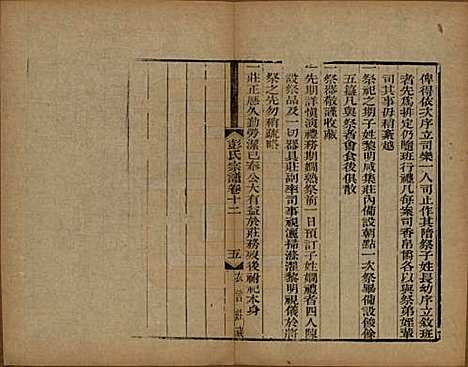 俾得依次序立司樂一人司止作其陪祭子姓長幼序立敘班
者先為排定仍隨班行禮凡每案司香帛爵各以與祭弟姪輩
司其事毋稍紊越
一祭祀之期子姓黎明咸集莊內備設朝點一次祭畢備設餕餘
五簋凡與祭者會食後俱散
一祭器敬謹收藏
一先期詳慎演禮務期嫻熟祭前一日預訂子姓嫻禮者四人陳
設祭品及一切器具莊副率司事視灑掃滌濯黎明視儀於將
祭之先勿稍疏略
一莊正歷久勤勞潔己奉公大有益於莊務歿後祔祀木身
彭氏宗譜卷十二
五
衣言莊藏